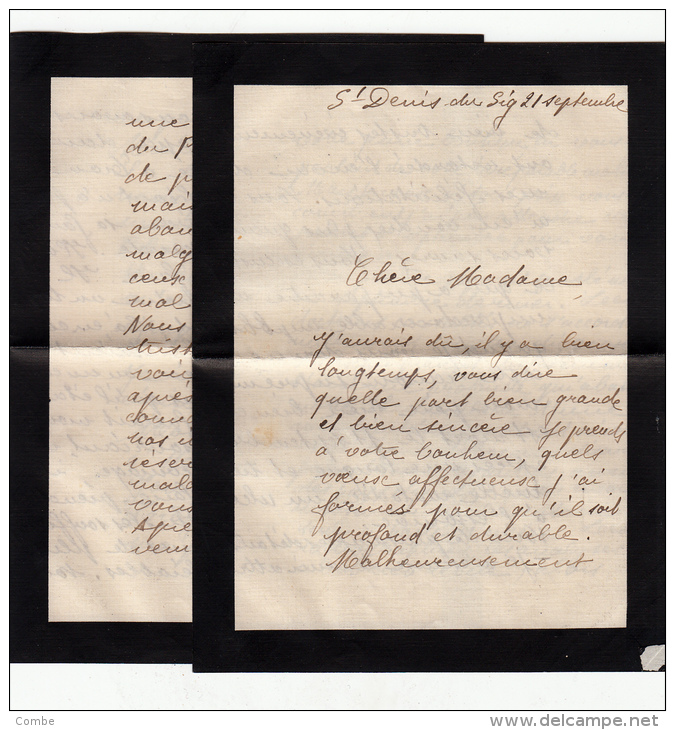 St Denis du Sig 21 septembre
Chère Madame
J'aurais dû, il y a bien
longtemps, vous dire
quelle part bien grande
et bien sincère je prends
à votre bonheur, quels
vœux affectueux j'ai
formés pour qu'il soit
profond et durable.
Malheureusement
une
du P
de p
mais
aban
malg
ceux
mal
Nous
trist
voir
après
conn
nos
réser
mala
vous
Apré
veni
Combe
www.delcampe.net